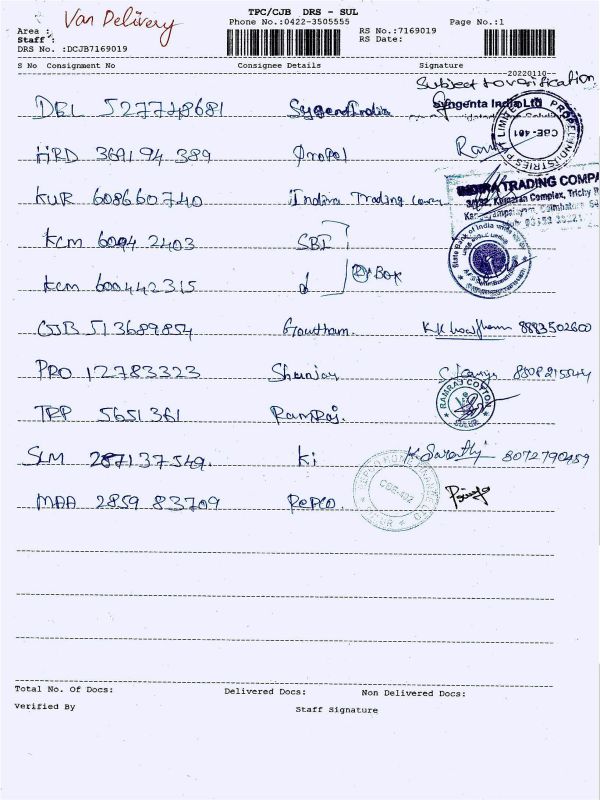 TPC/CJB DRS - SUL
Area : Van Delivery Phone No.:0422-3505555 RS No.:7169019 Page No.:1
Staff : RS Date:
DRS No. :DCJB7169019
S No Consignment No Consignee Details Signature
20220110
Subject to verification
DBL 527728681 Sygent India Syngenta India Ltd
HRD 369194389 Propel
PROPEL INDUSTRIES P LIMITED
CBE-461
KUR 608660740 Indira Trading
INDIRA TRADING COMPA
30/32, Kumaran Complex, Trichy R
Coimbatore
KCM 6094 2403 SBI
State Bank of India
KCM 600442315 Box
CJB 513689854 Goutham. 8883502600
PRO 12783323 Shenjay
TRP 5651361 RamRaj.
RAMRAJ COTTON
SULUR
SLM 287137549. Ki K. Sarathy 8072790459
MAA 2859 83709 Repco.
REPCO HOME FINANCE LTD
Total No. Of Docs: Delivered Docs: Non Delivered Docs:
Verified By Staff Signature